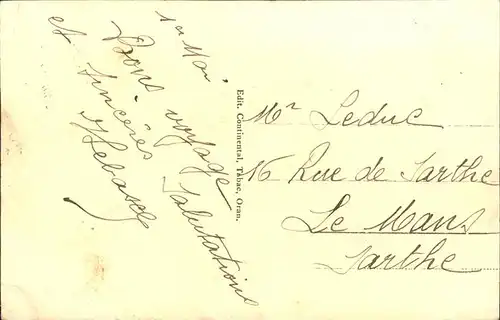 1er Mai
Bons voyage
et sincères Salutations
Mr Leduc
16 Rue de Sarthe
Le Mans
Sarthe
Edit. Continental, Tabac, Oran.